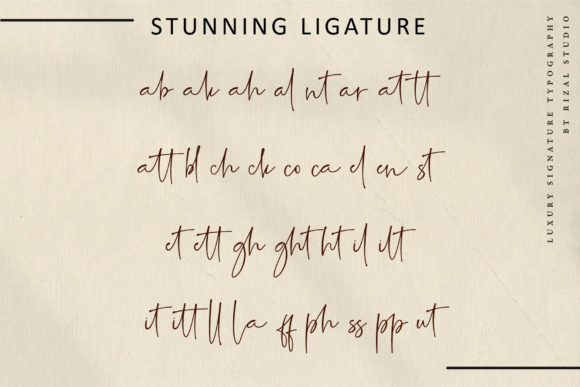 STUNNING LIGATURE
ab ak ah al nt ar at tt
att bl ch ck co ca el en st
et ett gh ght ht il ilt
it itt ll la ff ph ss pp ut
LUXURY SIGNATURE TYPOGRAPHY
BT RIZAL STUDIO